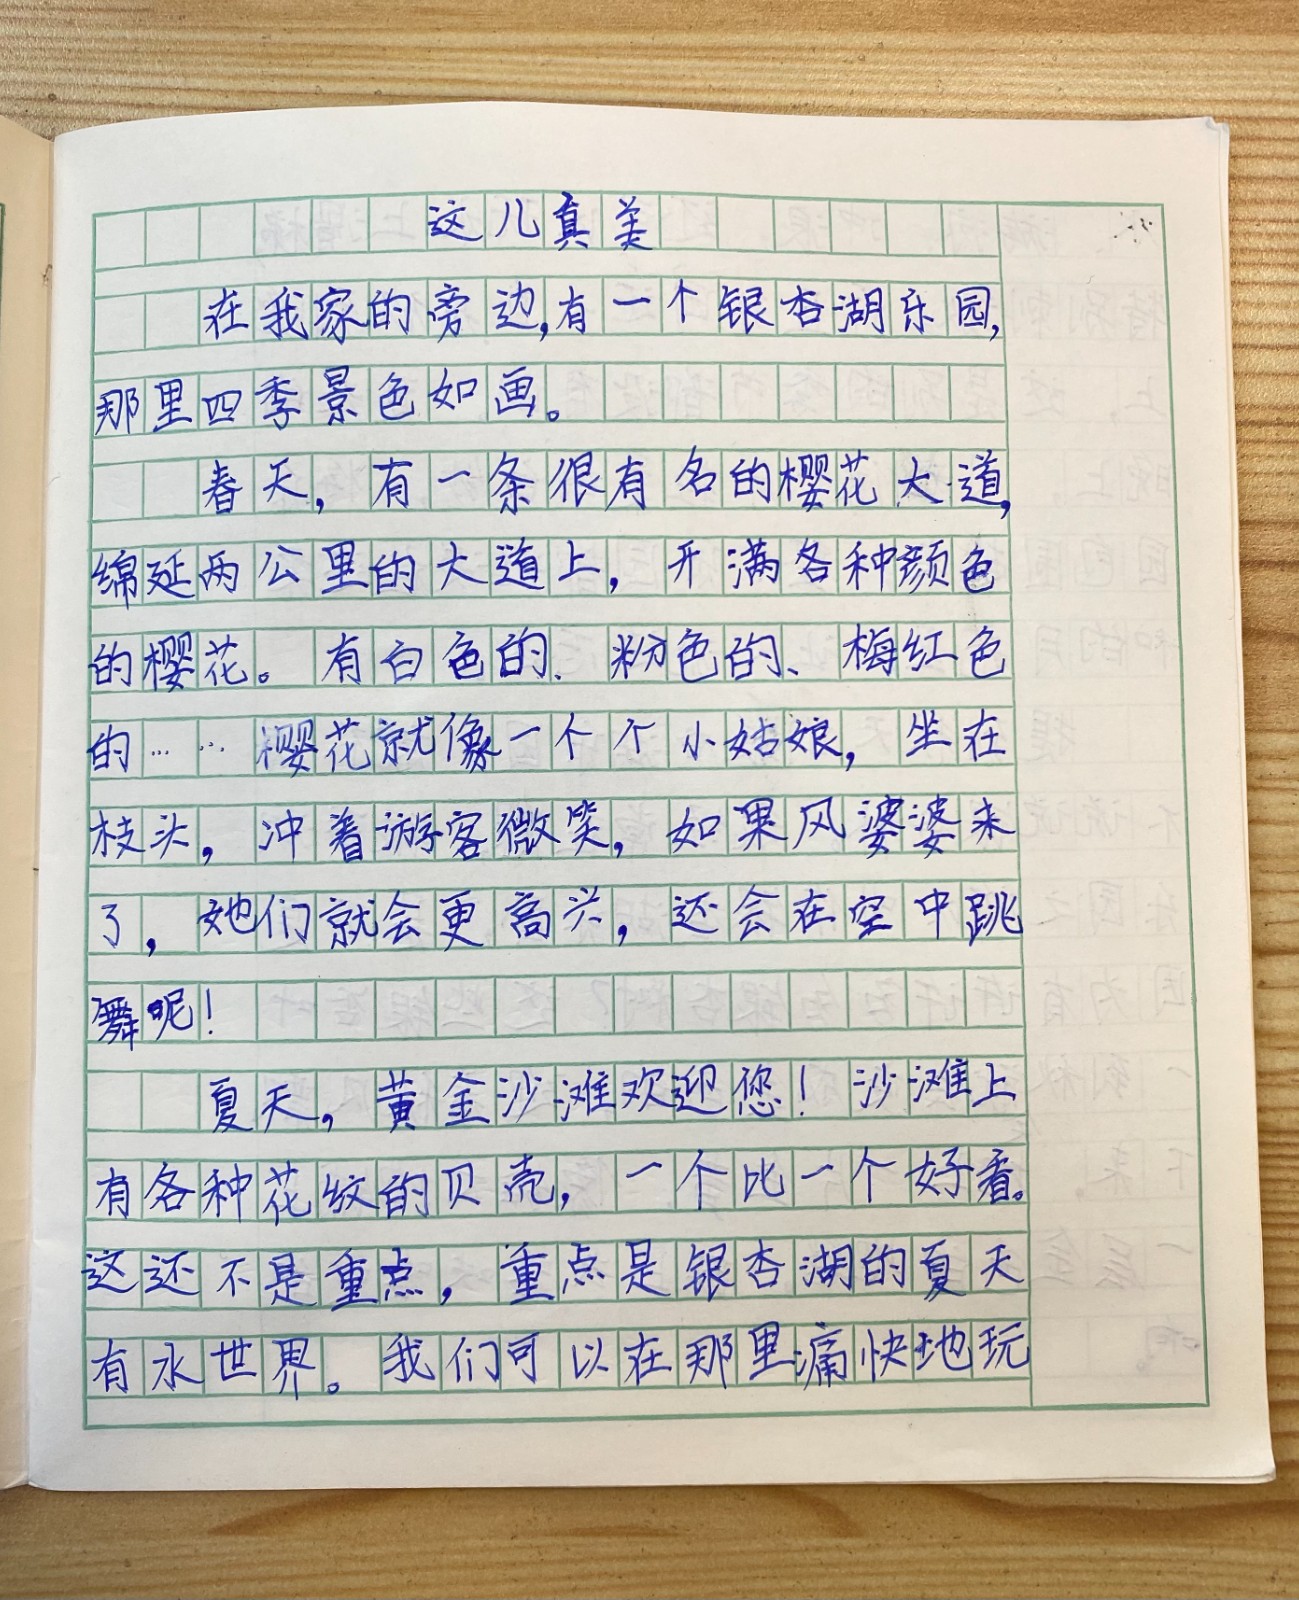 这儿真美
在我家的旁边,有一个银杏湖乐园,
那里四季景色如画。
春天,有一条很有名的樱花大道,
绵延两公里的大道上,开满各种颜色
的樱花。有白色的、粉色的、梅红色
的……樱花就像一个个小姑娘,坐在
枝头,冲着游客微笑,如果风婆婆来
了,她们就会更高兴,还会在空中跳
舞呢!
夏天,黄金沙滩欢迎您!沙滩上
有各种花纹的贝壳,一个比一个好看。
这还不是重点,重点是银杏湖的夏天
有水世界。我们可以在那里痛快地玩